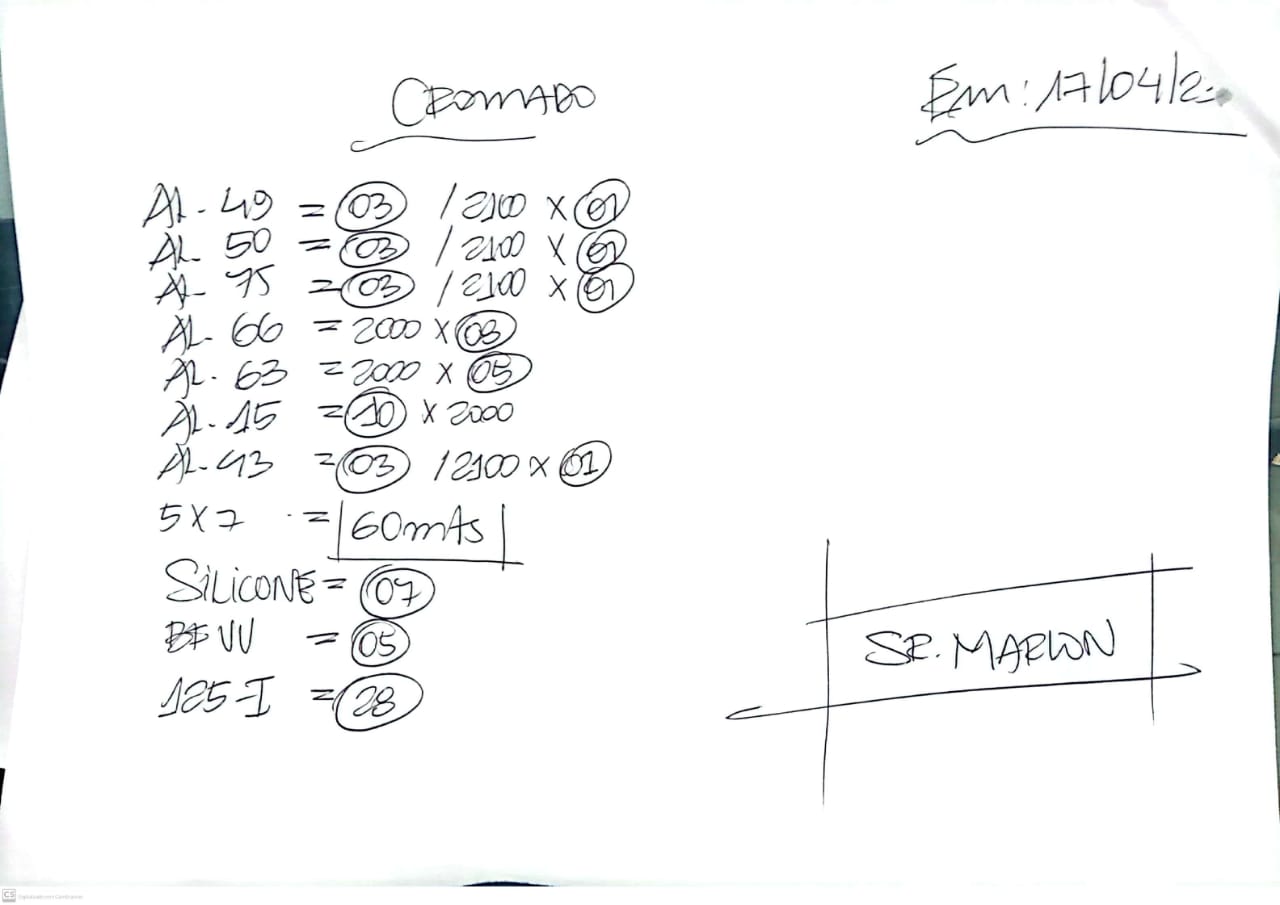 CROMADO
Em: 17/04/2
AL-49 = 03 / 2100 X 01
AL- 50 = 03 / 2100 X 01
AL- 75 = 03 / 2100 X 01
AL- 66 = 2000 X 08
AL- 63 = 2000 X 05
AL-15 = 10 X 2000
AL-43 = 03 / 2100 X 01
5X7 = 60mts
SILICONE = 07
BF VV = 05
125-I = 28
SR. MARLON
CS Digitalizado com CamScanner